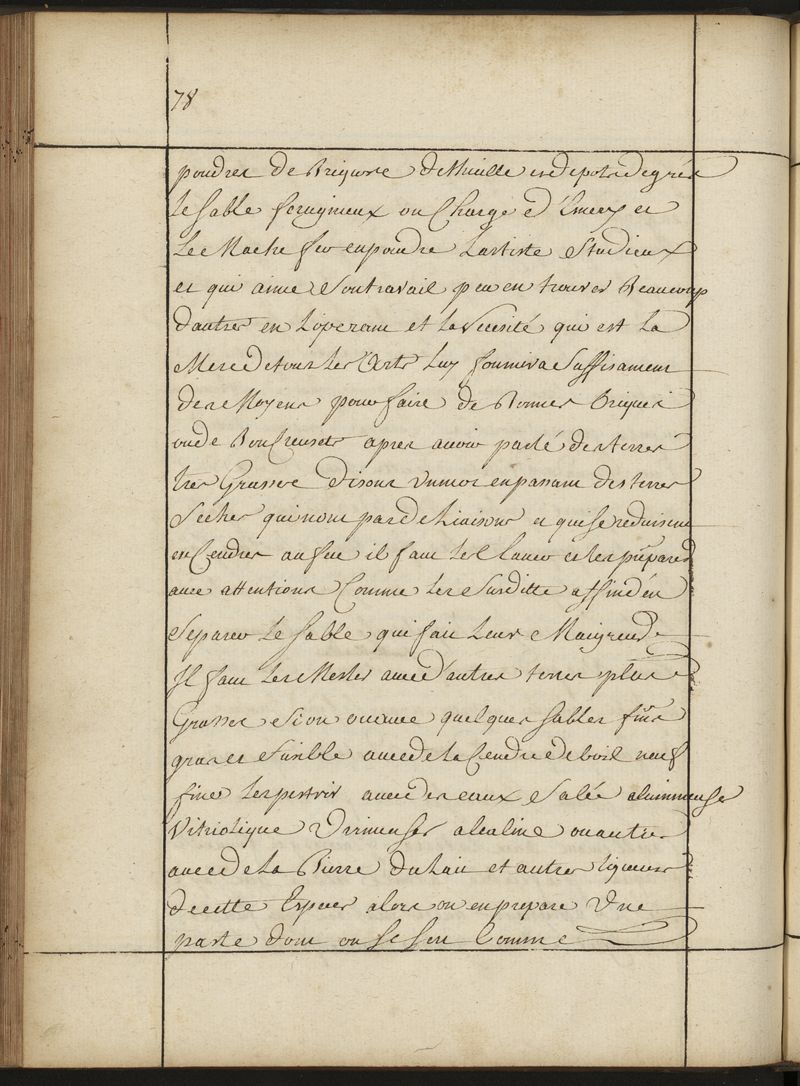 78
poudrer de Briques de thuille et de pots de grés
le Sable ferugineux ou Charge d'Emery et
Le Mache fer en poudre Lartiste Studieux
et qui aime Son travail peu en trouver Beaucoup
d'autres en Loperant et la Necesité qui est La
Mere de tous Les Arts Luy fournira Suffisament
des Moyens pour faire de Bonnes Briques
ou de Bon Creusets apres avoir parlé des terres
tres Grasses disons un mot en passant des terres
Seches qui nont pas de Liaisons et qui se reduisent
en Cendres au feu il faut les Laver et les préparer
avec attentions Comme les Susditte affin d'en
Separer Le Sable qui fait Leur Maigreur
Il faut les Mesler avec d'autres terres plus
Grasses Si on ou avec quelques Sables fins
gras et fusible avec de la Cendre de bois neuf
fine les pestrir avec des eaux Salée alumineuse
Vitriolique Urineuses alcaline ou autres
avec de la Pierre du Lait et autres liqueurs
de cette Espece alors on en prepare Une
paste dont on se sert Comme